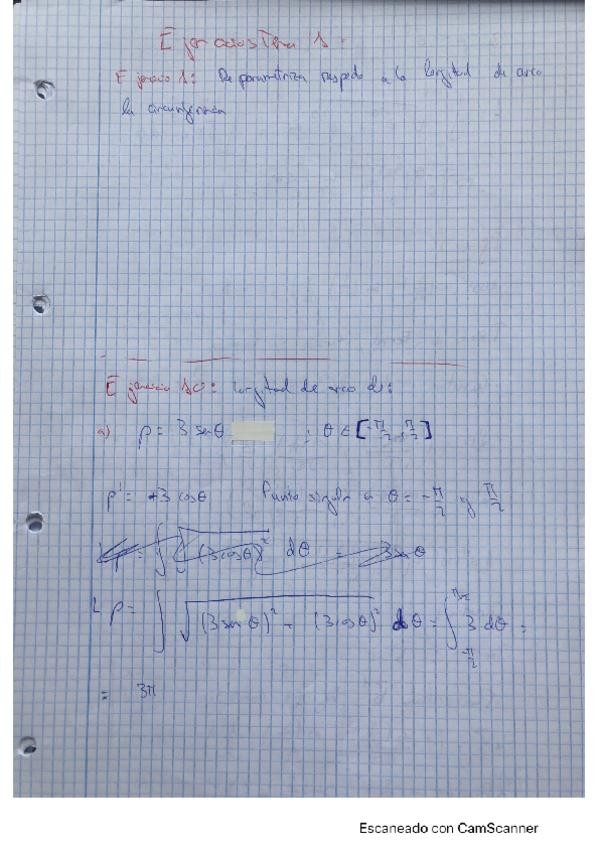 Ejercicios Tema 1.
Ejercicio 1: Re parametriza respecto a la longitud de arco
la circunferencia
Ejercicio 10: Longitud de arco de:
a) ρ = 3 senθ ; θ ∈ [-π/2, π/2]
ρ' = +3 cosθ Punto singular a θ = -π/2 y π/2
= ∫ √(3cosθ)² dθ = 3senθ
L ρ = ∫ √(3senθ)² + (3cosθ)² dθ = ∫_{-π/2}^{π/2} 3 dθ =
= 3π
Escaneado con CamScanner